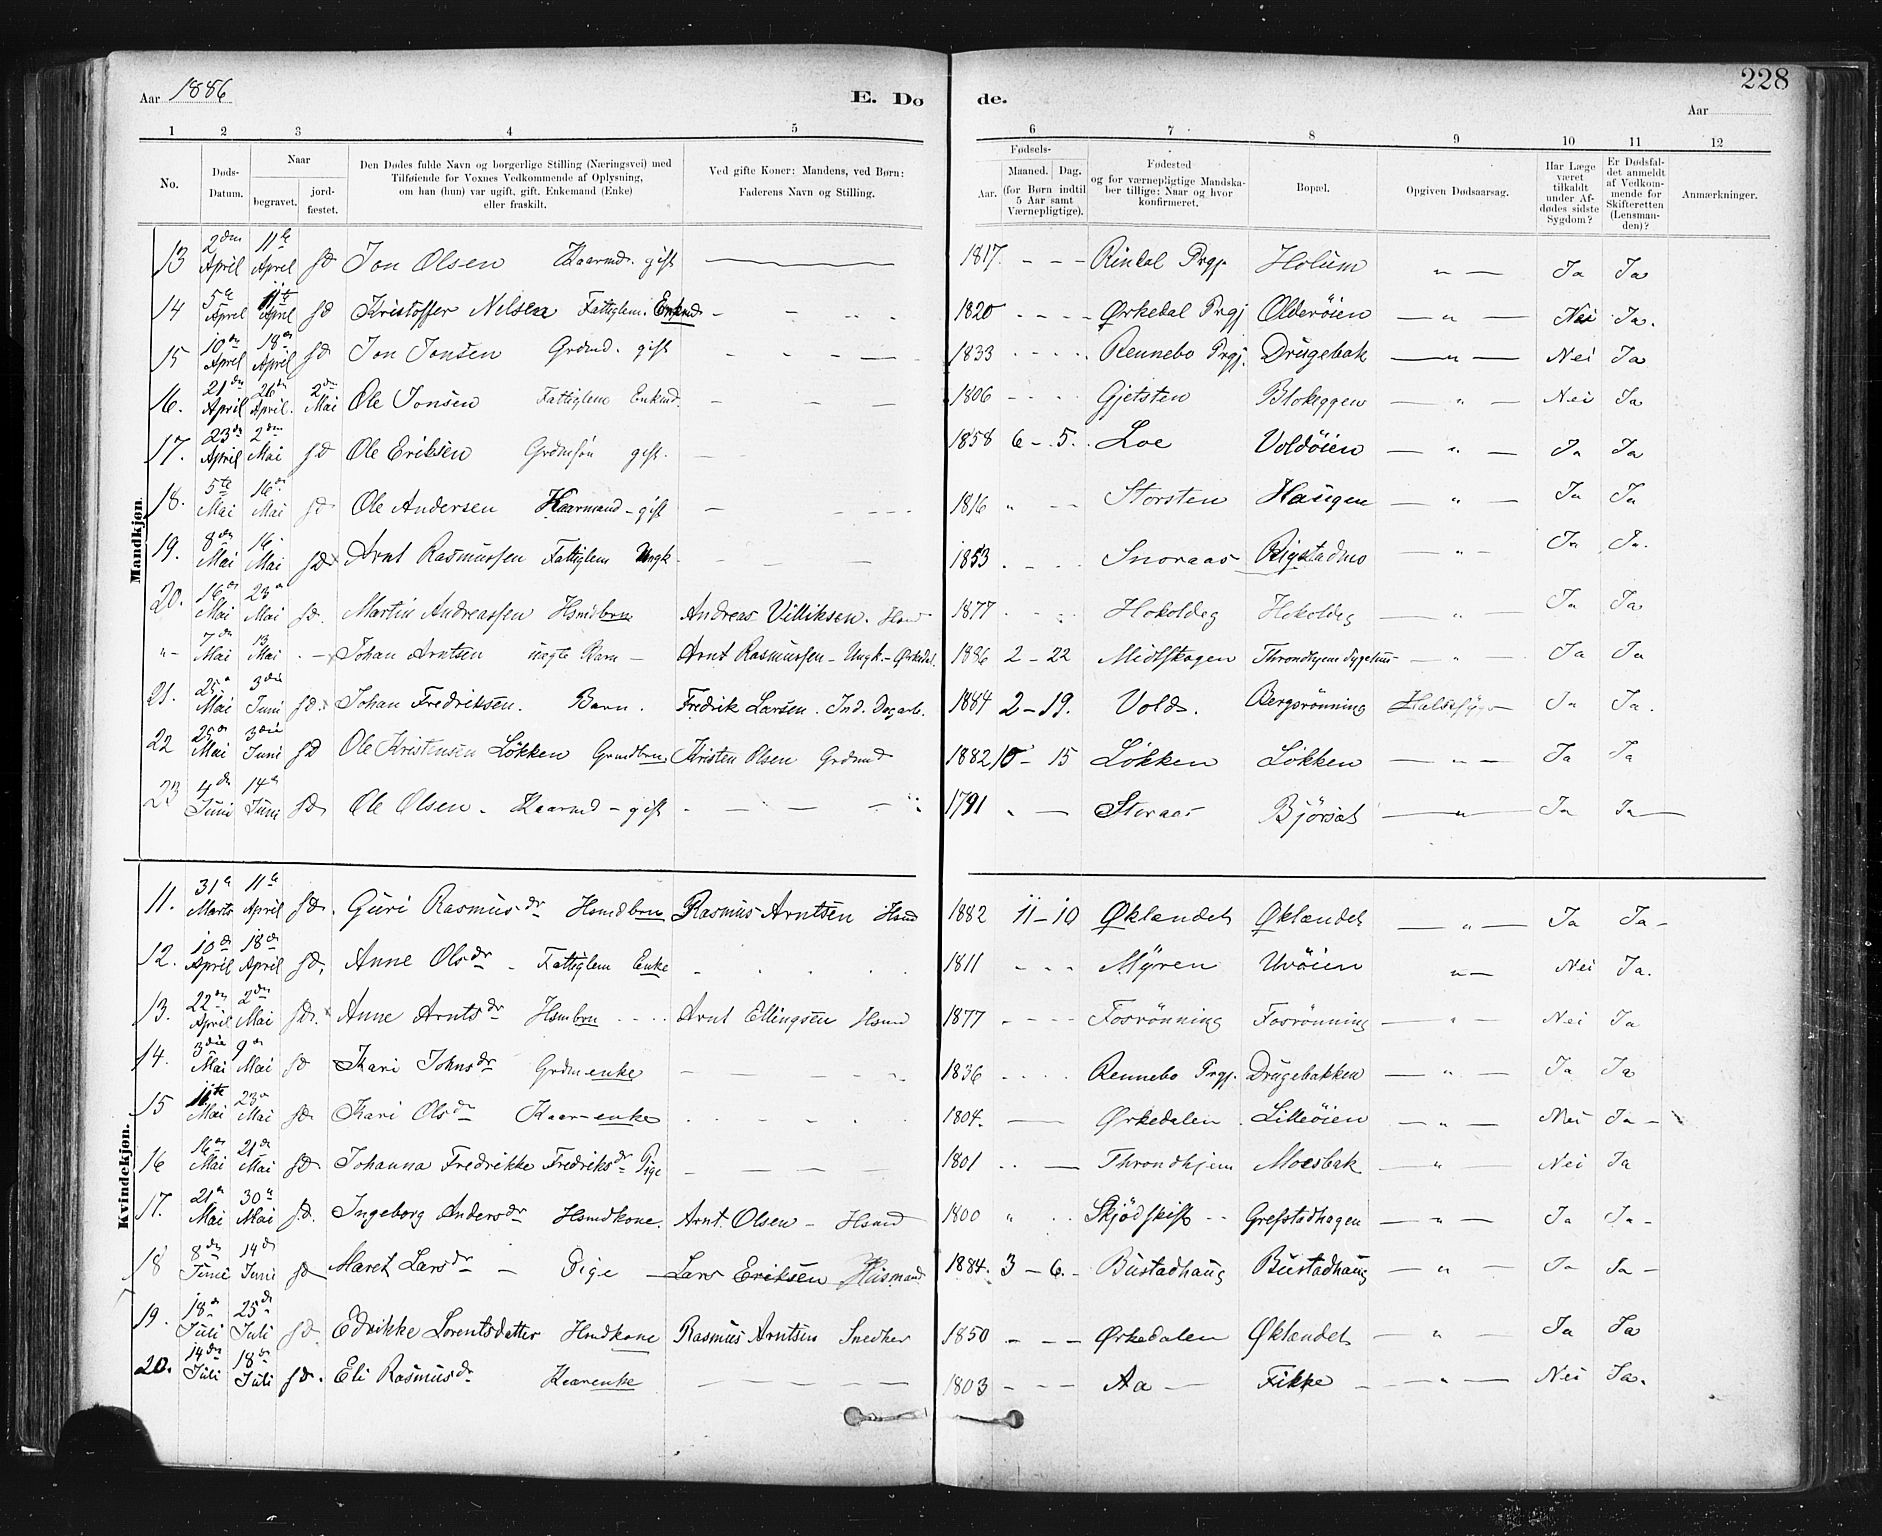 Aar 1886
E. Dø
de.
228
Aar
1 2 3 4 5 6 7 8 9 10 11 12
No.
Døds-Datum.
Naar
begravet.
jord-fæstet.
Den Dødes fulde Navn og borgerlige Stilling (Næringsvei) med
Tilføiende for Voxnes Vedkommende af Oplysning,
om han (hun) var ugift, gift, Enkemand (Enke)
eller fraskilt.
Ved gifte Koner: Mandens, ved Børn:
Faderens Navn og Stilling.
Fødsels-
Aar.
Maaned. Dag.
(for Børn indtil
5 Aar samt
Værnepligtige).
Fødested
og for værnepligtige Mandska-
ber tillige: Naar og hvor
konfirmeret.
Bopæl.
Opgiven Dødsaarsag.
Har Læge
været
tilkaldt
under Af-
dødes sidste
Sygdom?
Er Dødsfal-
det anmeldt
af Vedkom-
mende for
Skifteretten
(Lensman-
den)?
Anmærkninger.
Mandkjøn.
13 2den April 11te April Jon Olsen Kaarmd. gift 1817. Rindal Prgj. Holum " Ja Ja
14 5te April 11te April Kristoffer Nilsen Fattiglem. Enkmd 1820 Ørkedal Prgj Olderöien " Nei Ja.
15 10de April 18de April Jon Jonsen Grdmd. gift 1833 Rennebo Prgj. Drugebak " Nei Ja
16. 21de April 26de April. 2den Mai Ole Jonsen Fattiglem Enkmd. 1806 Gjetsten Blokeggen " Nei Ja
17. 23de April 2den Mai Ole Eriksen gift. 1858 6 - 5. Loe Voldöien " Ja Ja
18. 5te Mai 16de Mai Ole Andersen Kaarmand - gift 1816 " Storsten Haugen " Ja Ja
19. 8de Mai 16. Mai Arnt Rasmussen Fattiglem Ungk. 1853 Snoraas Rigstadmo " Ja Ja.
20. 16de Mai 23de Mai Martin Andreassen Hsmdbrn Andreas Villiksen. Hsmd 1877 Hokoldeg Hokoldeg " Ja Ja
"- 7de Mai 13 Mai Johan Arntsen uægte Barn - Arnt Rasmussen - Ungk. - Ørkedal. 1886 2 - 22 Midtskogen " Ja Ja
21. 25de Mai 3die Juni Johan Fredriksen. Barn. Fredrik Larsen. Ind. Dagarb. 1884 2 - 19. Volds. Bergsrönning Ja Ja.
22 25de Mai 3die Juni Ole Kristensen Løkken Grmdbrn Kristen Olsen Grdmd 1882 10 - 15 Løkken Løkken " Ja Ja
23 4de Juni 14de Juni Ole Olsen - Kaarmd - gift 1791 Storaas Björset " Ja Ja
Kvindekjøn.
11. 31te Marts 11te April Guri Rasmusdr Hsmdbrn Rasmus Arntsen Hsmd 1882 11 - 10 Øklandet Øklandet " Ja Ja -
12. 10de April 18de April Anne Olsdr - Fattiglem Enke 1811 Myren Uvöien " Nei Ja.
13. 22den April 2den Mai Anne Arntsdr Hsmbrn Arnt Ellingsen Hsmd 1877 Fosrönning Fosrönning " Nei Ja
14. 3die Mai 9de Mai Kari Johnsdr Grdm enke 1836 Rennebo Prgj. Drugebakken " Ja Ja
15 11te Mai 23de Mai Kari Olsdr Kaar-enke 1804. Ørkedalen Lilleöien " Nei Ja -
16 16de Mai 21de Mai Johanna Fredrikke Fredriksdr Pige 1801 Throndhjem Moesbak " Nei Ja
17. 21de Mai 30te Mai Ingeborg Andersdr Hsmdkone. Arnt. Olsen - Hsmd 1800 " Skjödskift Grefstadhagen " Ja Ja -
18 8de Juni 14de Juni Maret Larsdr - Pige - Lars Eriksen Husmand 1884. 3 - 6. Bustadhaug Bustadhaug " Ja Ja -
19. 18de Juli 25de Juli Edrikke Lorentsdatter Hmdkone Rasmus Arntsen Snedker 1850 Ørkedalen Øklandet " Ja Ja
20. 14de Juli 18de Juli Eli Rasmusdr Kaarenke 1803 Aa Fikke " Nei Ja.